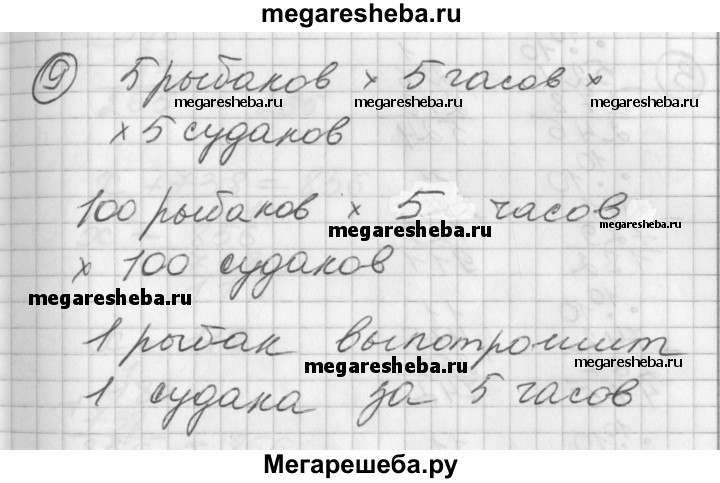 megaresheba.ru
9 5 рыбаков × 5 часов ×
megaresheba.ru megaresheba.ru megaresheba.ru
× 5 суданов
100 рыбаков × 5 часов
megaresheba.ru megaresheba.ru
× 100 судаков
megaresheba.ru
1 рыбак выпотрошит
megaresheba.ru megaresheba.ru
1 судака за 5 часов
Мегарешеба.ру